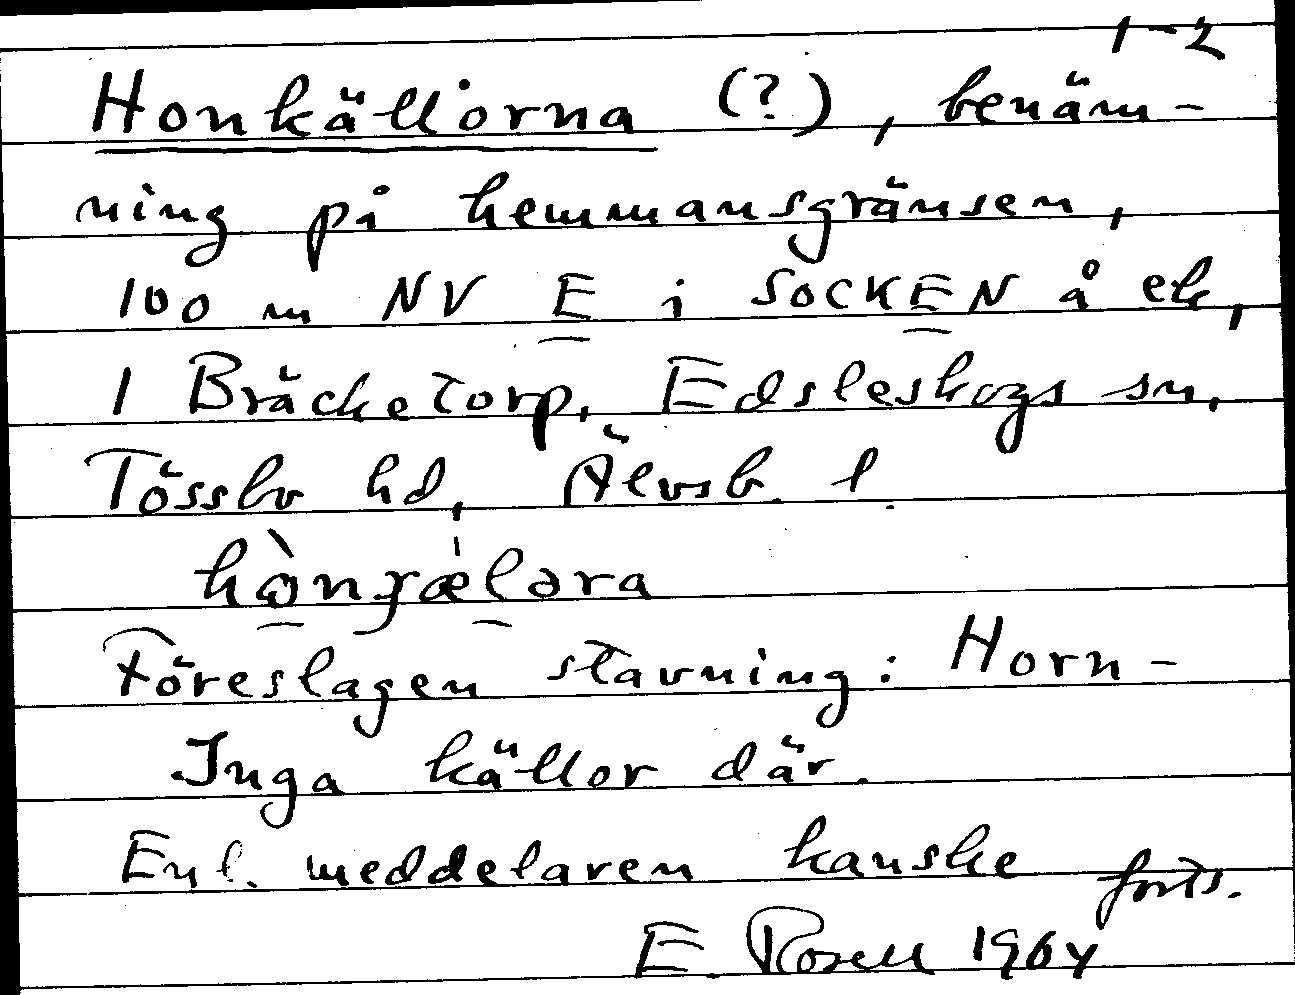 1-2
Honkällorna (?), benäm-
ning på hemmansgränsen,
100 m NV E i SOCKEN å ek,
1 Bräcketorp, Edsleskogs sn,
Tössbo hd, Älvsb. l.
Föreslagen stavning: Horn-
Inga källor där.
Enl. meddelaren kanske forts.
E. Rosell 1964